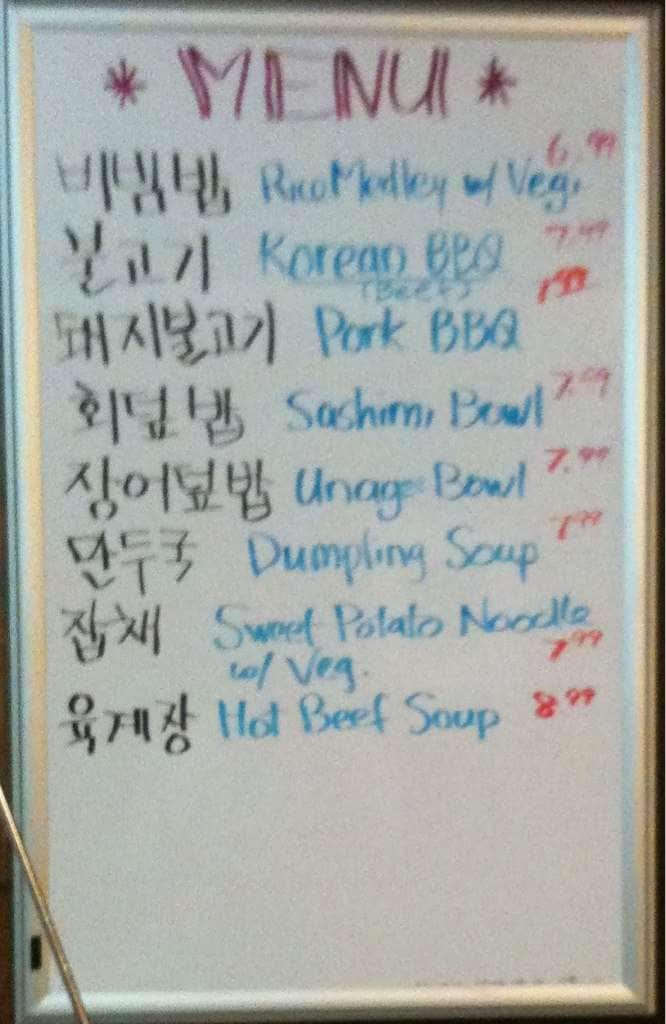 * MENU *
비빔밥 Rice Medley w/ Veg. 6.99
불고기 Korean BBQ 7.99
(Beef)
돼지불고기 Pork BBQ 7.99
회덮밥 Sashimi Bowl 7.99
장어덮밥 Unagi Bowl 7.99
만두국 Dumpling Soup 7.99
잡채 Sweet Potato Noodle
w/ Veg. 7.99
육계장 Hot Beef Soup 8.99